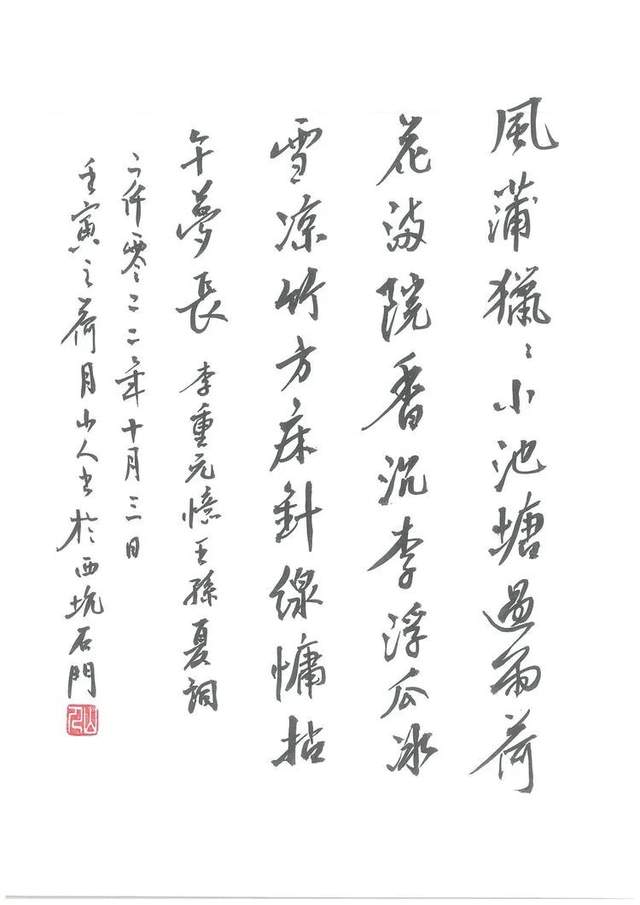 風蒲獵〻小池塘過雨荷
花滿院香沉李浮瓜冰
雪凉竹方床針線慵拈
午夢長 李重元憶王孫夏詞
二仟零二二年十月三日
壬寅之荷月山人书於西坑石門
山人